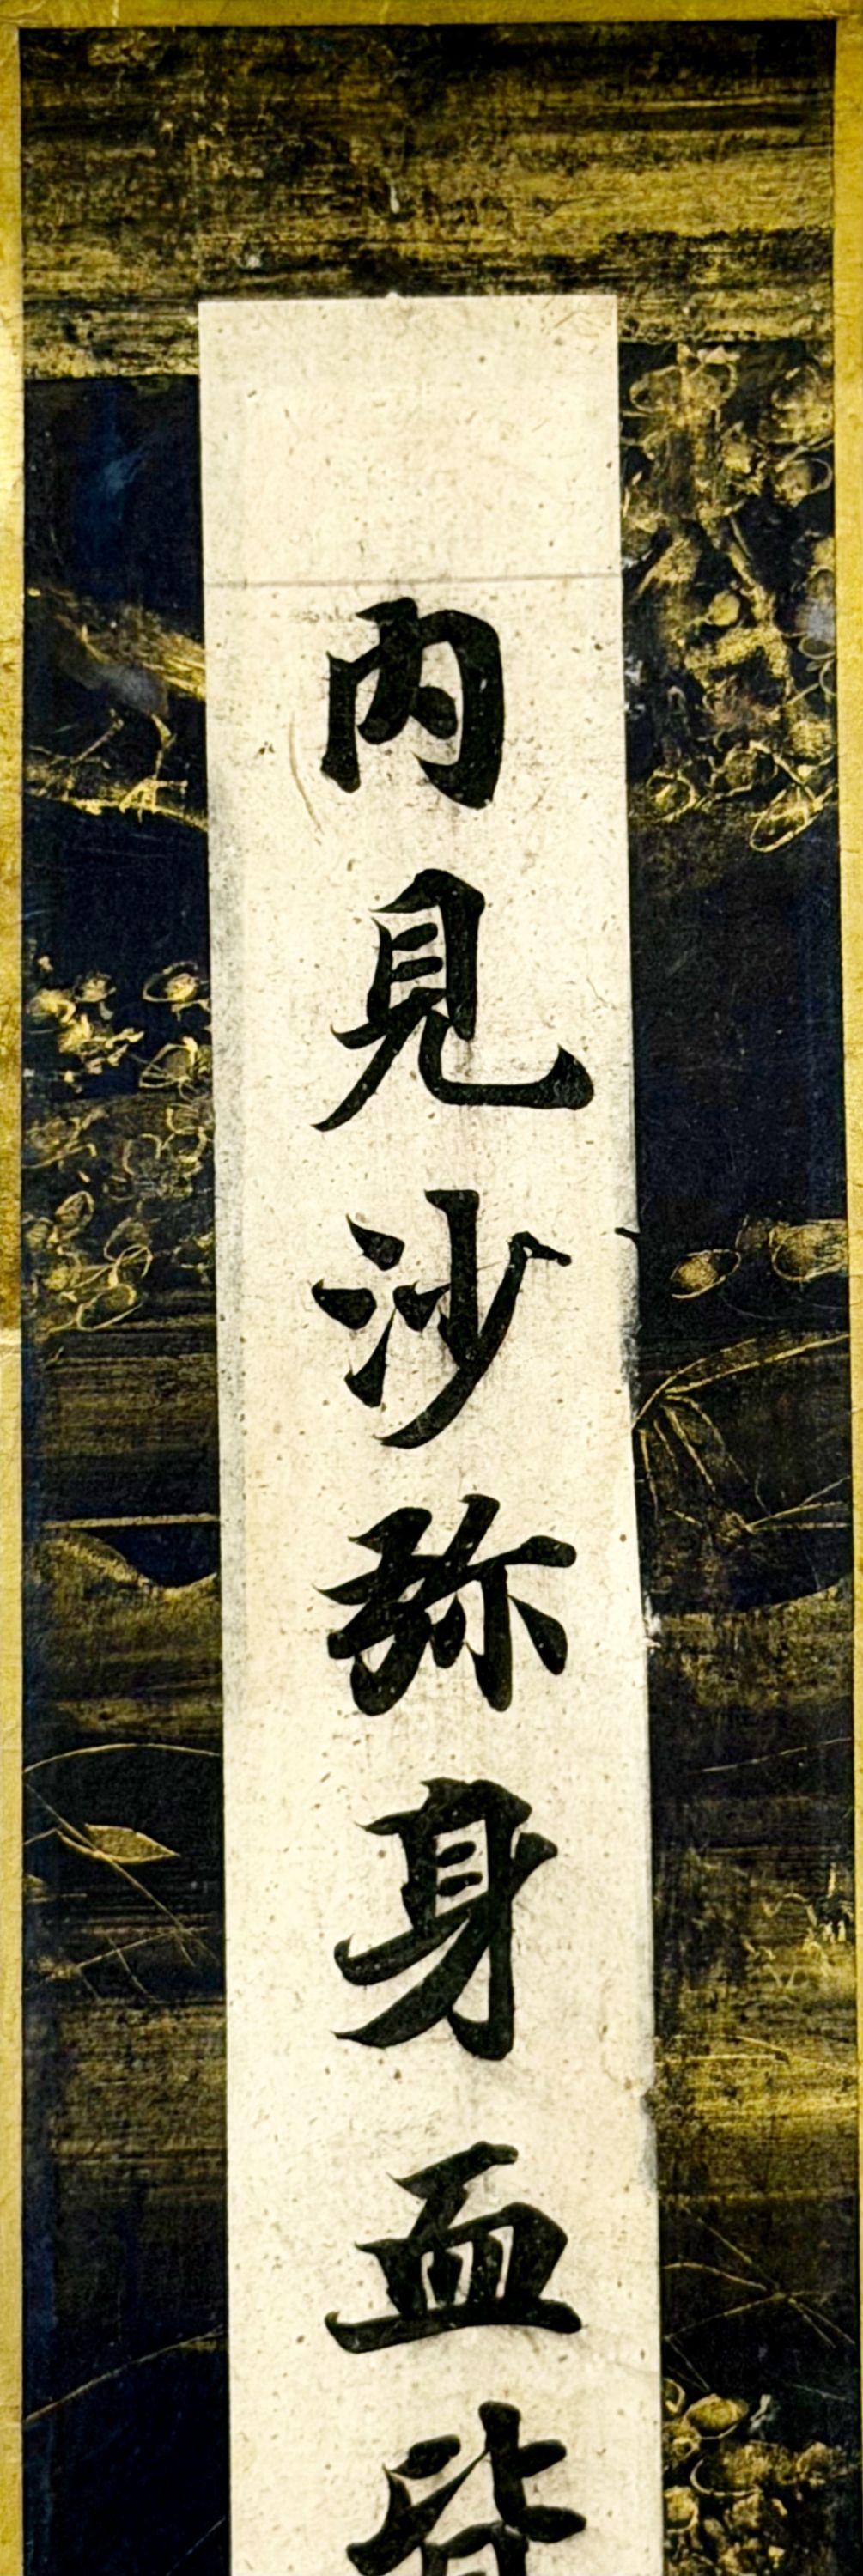 内見沙弥身血皆